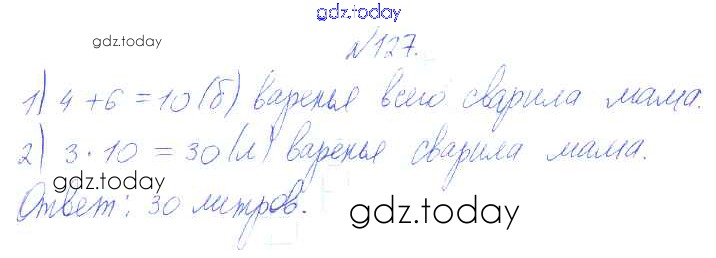 gdz.today
gdz.today
№127.
1) 4+6=10(б) варенья всего сварила мама.
2) 3·10=30(л) варенья сварила мама.
gdz.today
Ответ: 30 литров.
gdz.today